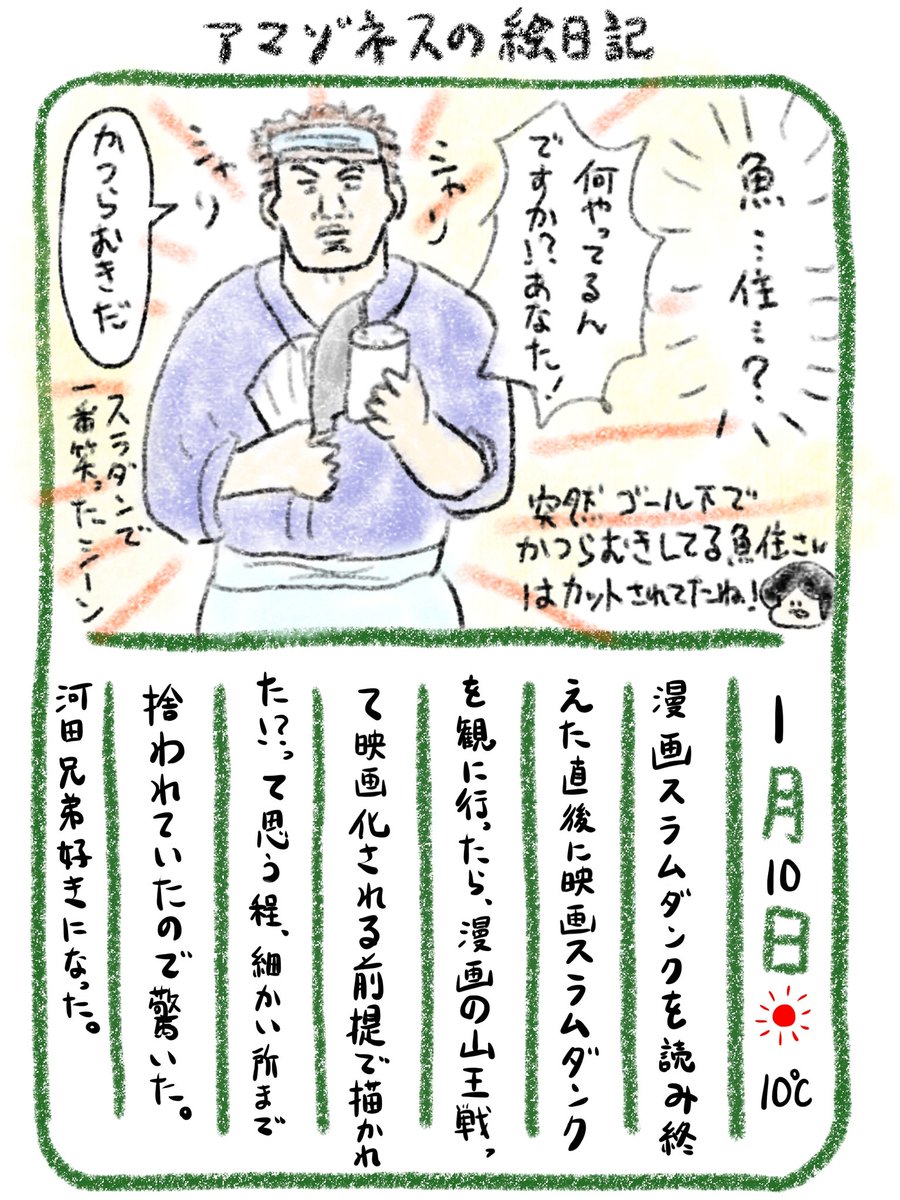 アマゾネスの絵日記
魚…住…?
何やってるん
ですか!?あなた!
シャリ
シャリ
かつらむきだ
スラダンで
一番笑ったシーン
突然ゴール下で
かつらむきしてる魚住さん
はカットされてたね!
1月10日
10℃
漫画スラムダンクを読み終
えた直後に映画スラムダンク
を観に行ったら、漫画の山王戦っ
て映画化される前提で描かれ
た!?って思う程、細かい所まで
捨われていたので驚いた。
河田兄弟好きになった。